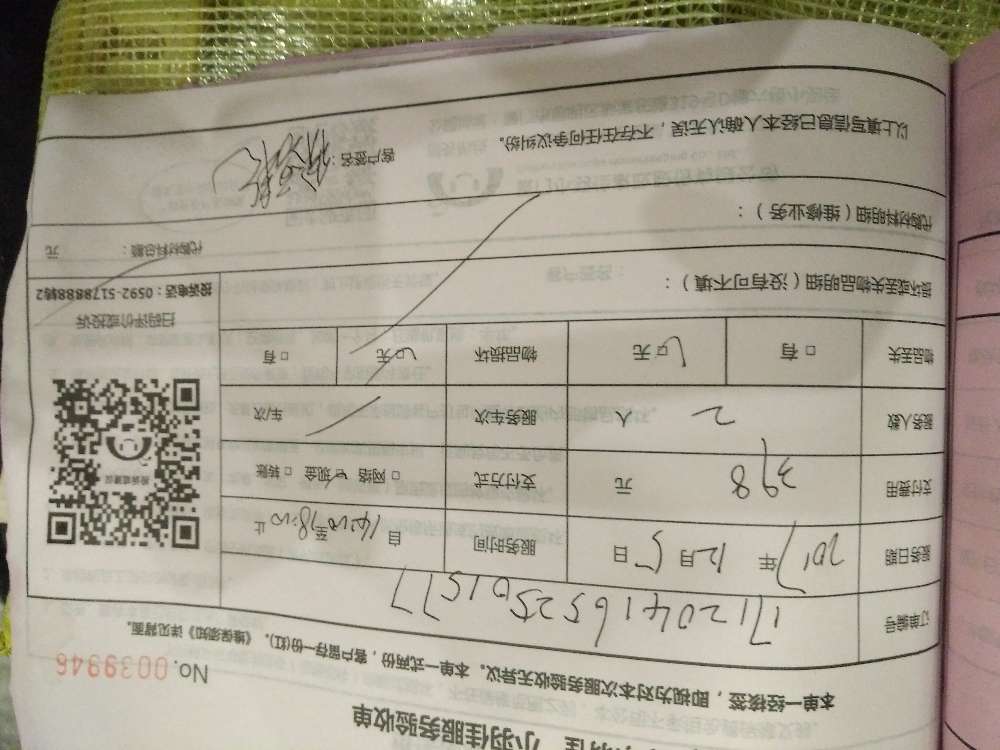 佳 小羽佳服务验收单
本单一经接签，即视为对本次服务验收无异议。本单一式两份，客户留存一份(红)。《维保须知》详见背面。
No. 0039946
订单编号 1712041652501577
服务日期 2017年12月5日 服务时间 自14:00至18:00止
支付费用 398 元 支付方式 □网络 ☑现金 □转账
服务人数 2 人 服务车次 车/次
物品丢失 □有 ☑无 物品损坏 ☑无 □有
损坏或丢失物品明细（没有可不填）：
代购材料明细（维修业务）： 代购材料总额： 元
以上填写信息已经本人确认无误，不存在任何争议纠纷。
客户签名：
投诉或建议
扫码评价或投诉
投诉电话：0592-5178888转2